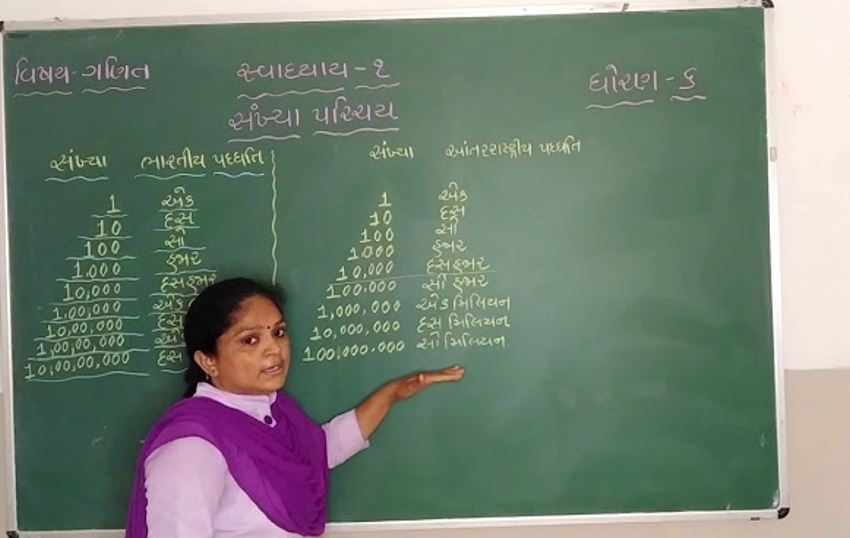 વિષય-ગણિત
સ્વાધ્યાય-૧
ધોરણ-૬
સંખ્યા પરિચય
સંખ્યા ભારતીય પધ્ધતિ
1 એક
10 દસ
100 સો
1,000 હજાર
10,000 દસ હજાર
1,00,000 એક
10,00,000 દસ
1,00,00,000 એક
10,00,00,000 દસ
સંખ્યા આંતરરાષ્ટ્રીય પધ્ધતિ
1 એક
10 દસ
100 સો
1,000 હજાર
10,000 દસ હજાર
100,000 સો હજાર
1,000,000 એક મિલિયન
10,000,000 દસ મિલિયન
100,000,000 સો મિલિયન